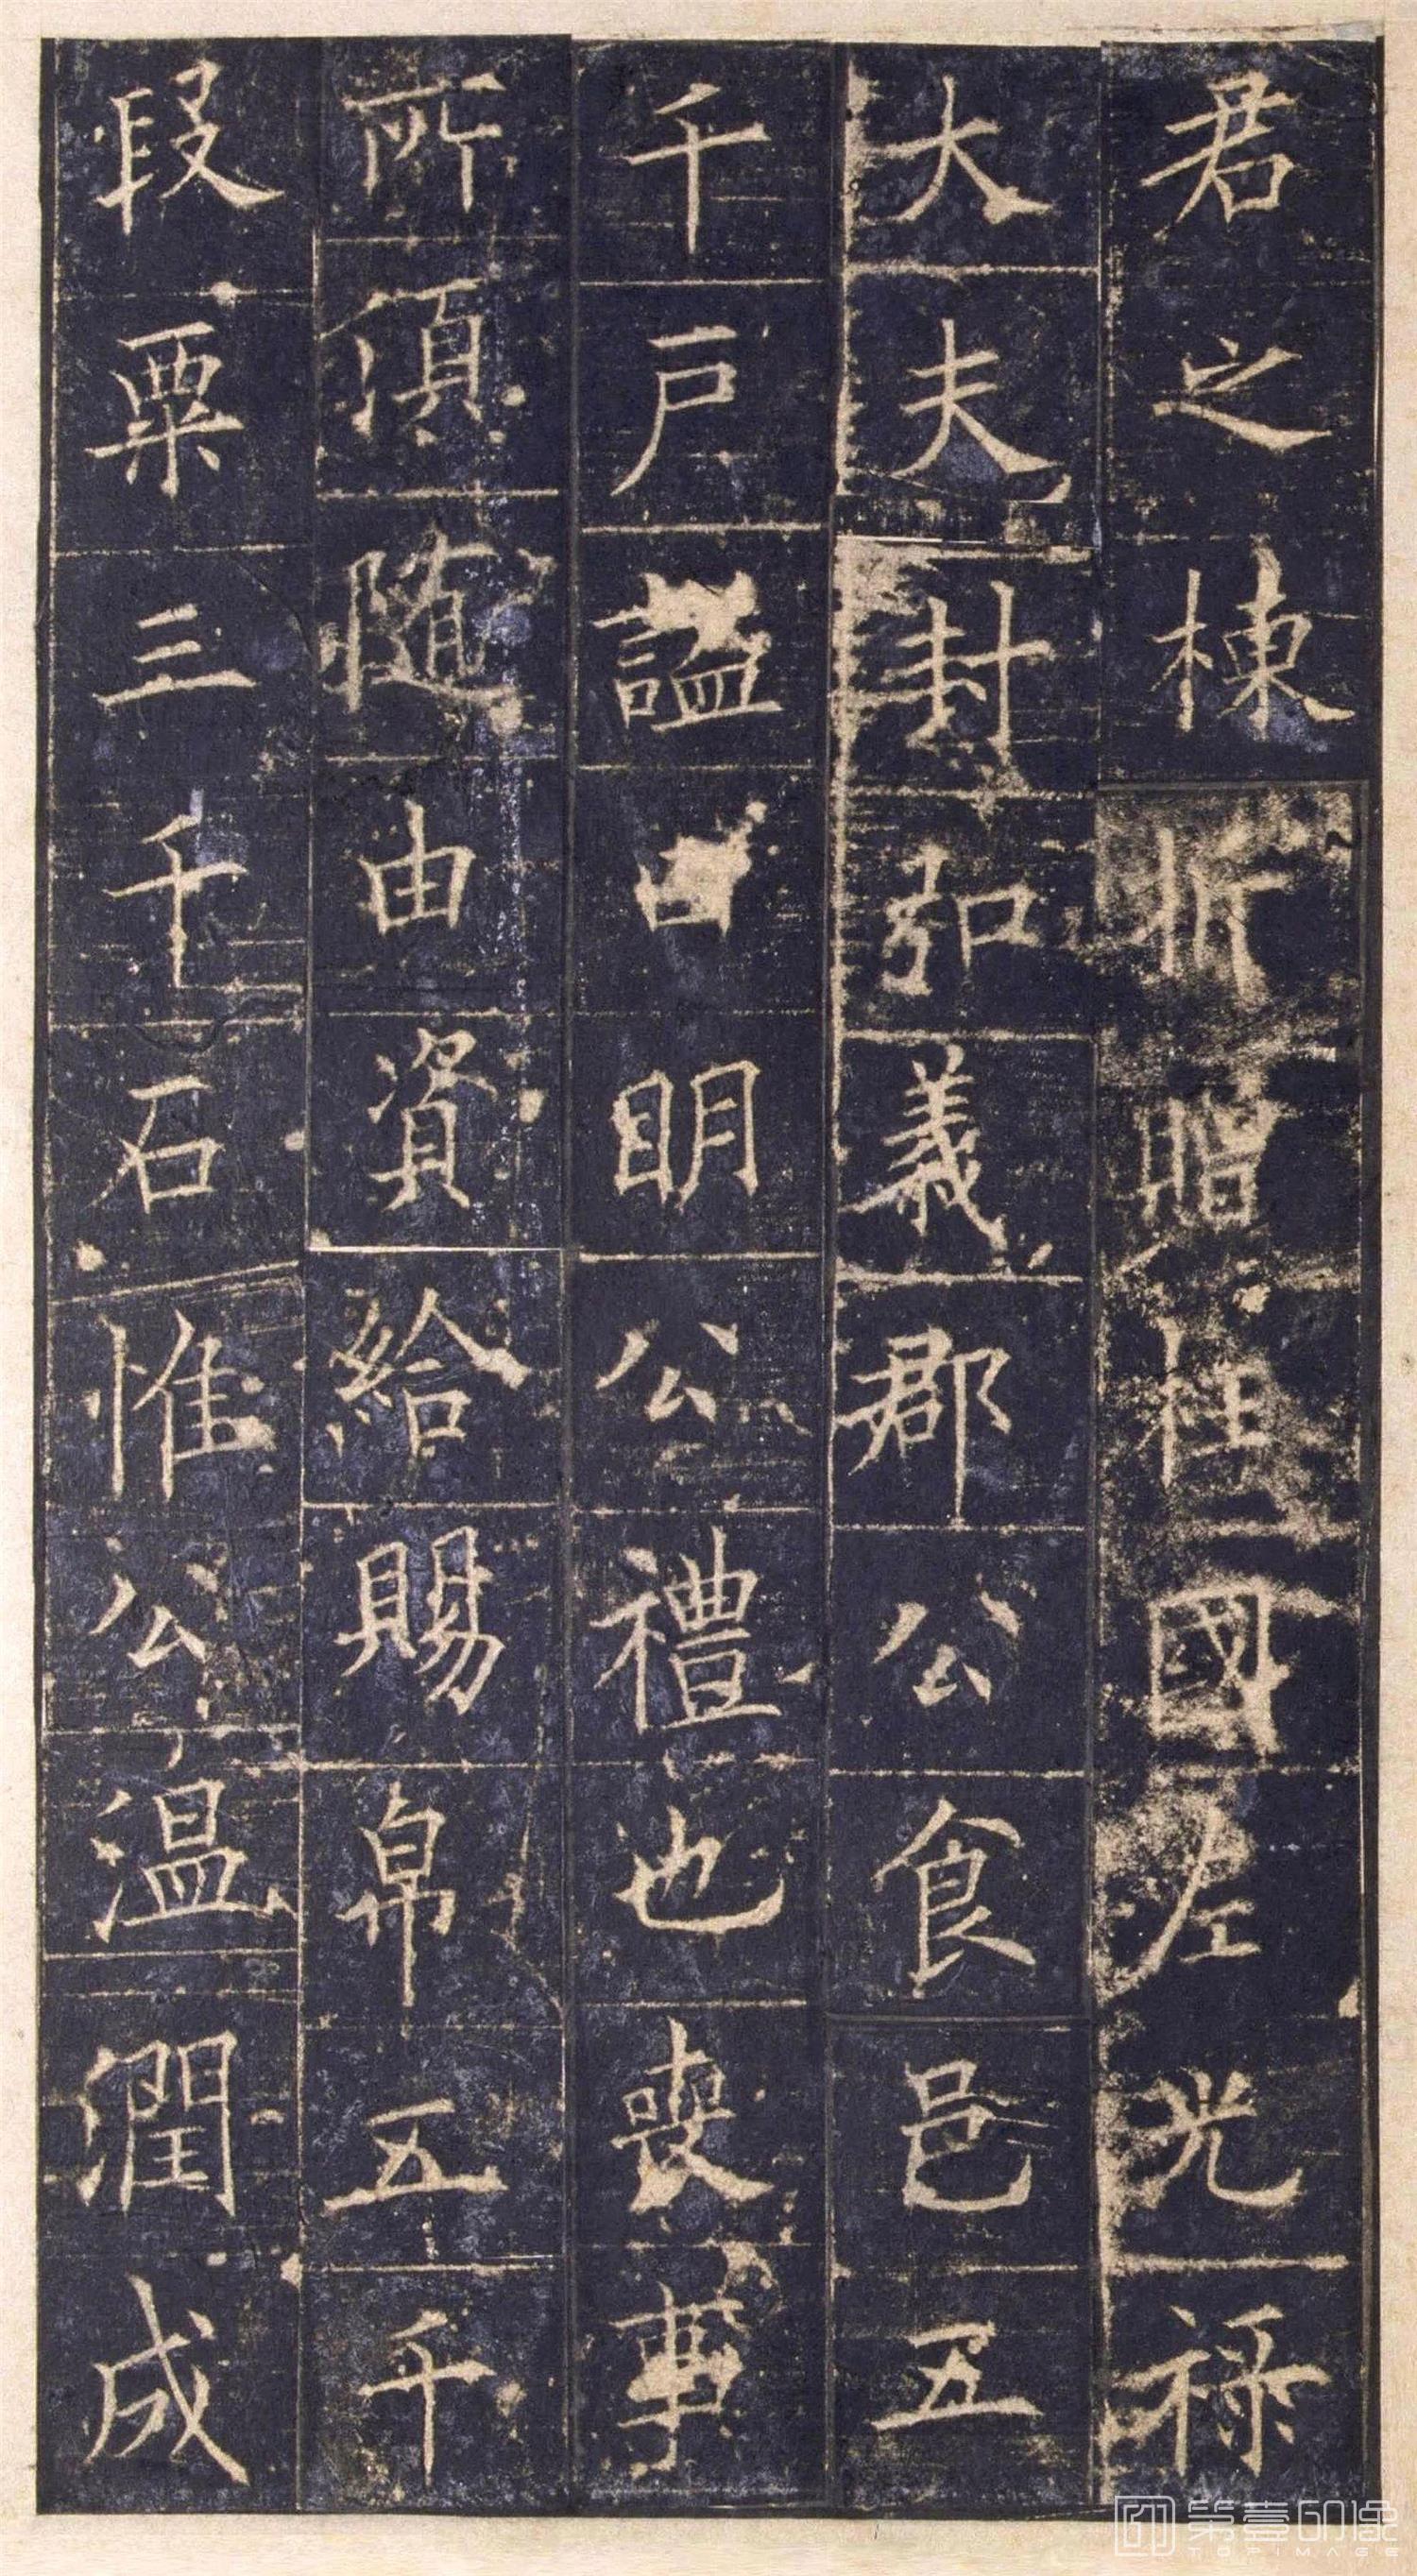 君之棟折贈柱國左光祿
大夫封弘義郡公食邑五
千戶謚曰明公禮也喪事
所湏随由資給賜帛五千
段粟三千石惟公溫潤成
第壹印像
TOPIMAGE